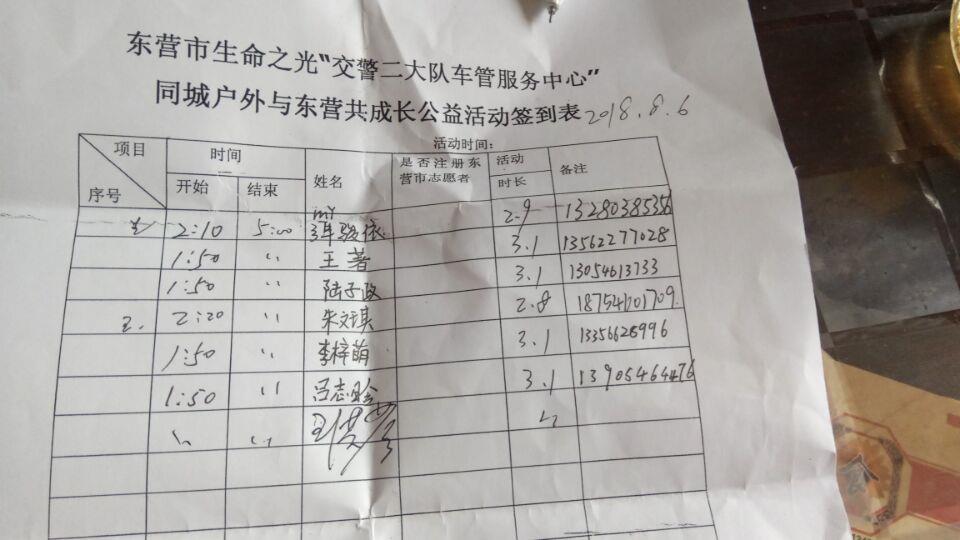 东营市生命之光“交警二大队车管服务中心”
同城户外与东营共成长公益活动签到表 2018.8.6
活动时间：
项目 时间 姓名 是否注册东营市志愿者 活动时长 备注
序号 开始 结束
2:10 5:00 2.9 13280385356
1:50 〃 王著 3.1 13562277028
1:50 〃 陆子政 3.1 13054613733
2. 2:20 〃 朱文琪 2.8 18754601709
1:50 〃 李梓萌 3.1 13356628996
1:50 〃 吕志 3.1 13905464476
〃 〃